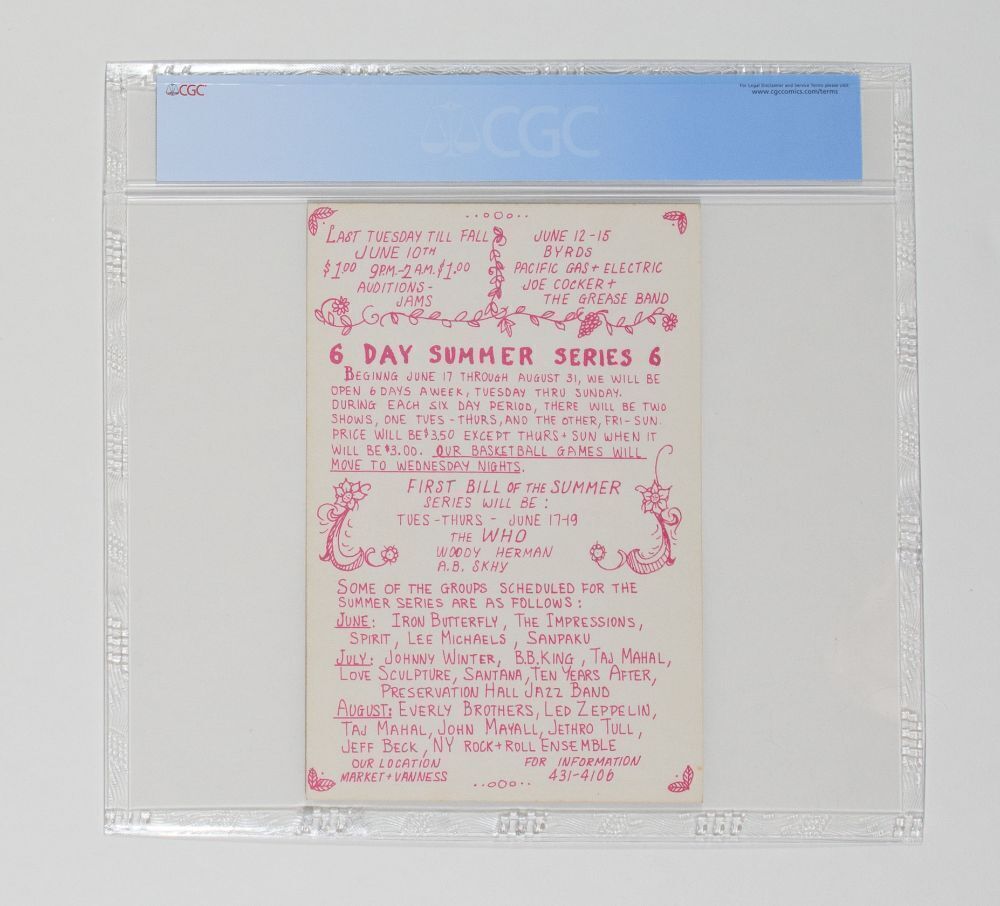 CGC
For Legal Disclaimer and Service Terms please visit:
www.cgccomics.com/terms
CGC
LAST TUESDAY TILL FALL
JUNE 10TH
$1.00 9PM.-2 A.M. $1.00
AUDITIONS -
JAMS
JUNE 12-15
BYRDS
PACIFIC GAS + ELECTRIC
JOE COCKER +
THE GREASE BAND
6 DAY SUMMER SERIES 6
BEGINNG JUNE 17 THROUGH AUGUST 31, WE WILL BE
OPEN 6 DAYS A WEEK, TUESDAY THRU SUNDAY.
DURING EACH SIX DAY PERIOD, THERE WILL BE TWO
SHOWS, ONE TUES - THURS, AND THE OTHER, FRI - SUN.
PRICE WILL BE $3.50 EXCEPT THURS + SUN WHEN IT
WILL BE $3.00. OUR BASKETBALL GAMES WILL
MOVE TO WEDNESDAY NIGHTS.
FIRST BILL OF THE SUMMER
SERIES WILL BE :
TUES - THURS - JUNE 17-19
THE WHO
WOODY HERMAN
A.B. SKHY
SOME OF THE GROUPS SCHEDULED FOR THE
SUMMER SERIES ARE AS FOLLOWS :
JUNE: IRON BUTTERFLY, THE IMPRESSIONS,
SPIRIT, LEE MICHAELS, SANPAKU
JULY: JOHNNY WINTER, B.B. KING, TAJ MAHAL,
LOVE SCULPTURE, SANTANA, TEN YEARS AFTER,
PRESERVATION HALL JAZZ BAND
AUGUST: EVERLY BROTHERS, LED ZEPPELIN,
TAJ MAHAL, JOHN MAYALL, JETHRO TULL,
JEFF BECK, NY ROCK + ROLL ENSEMBLE
OUR LOCATION
MARKET + VANNESS
FOR INFORMATION
431-4106